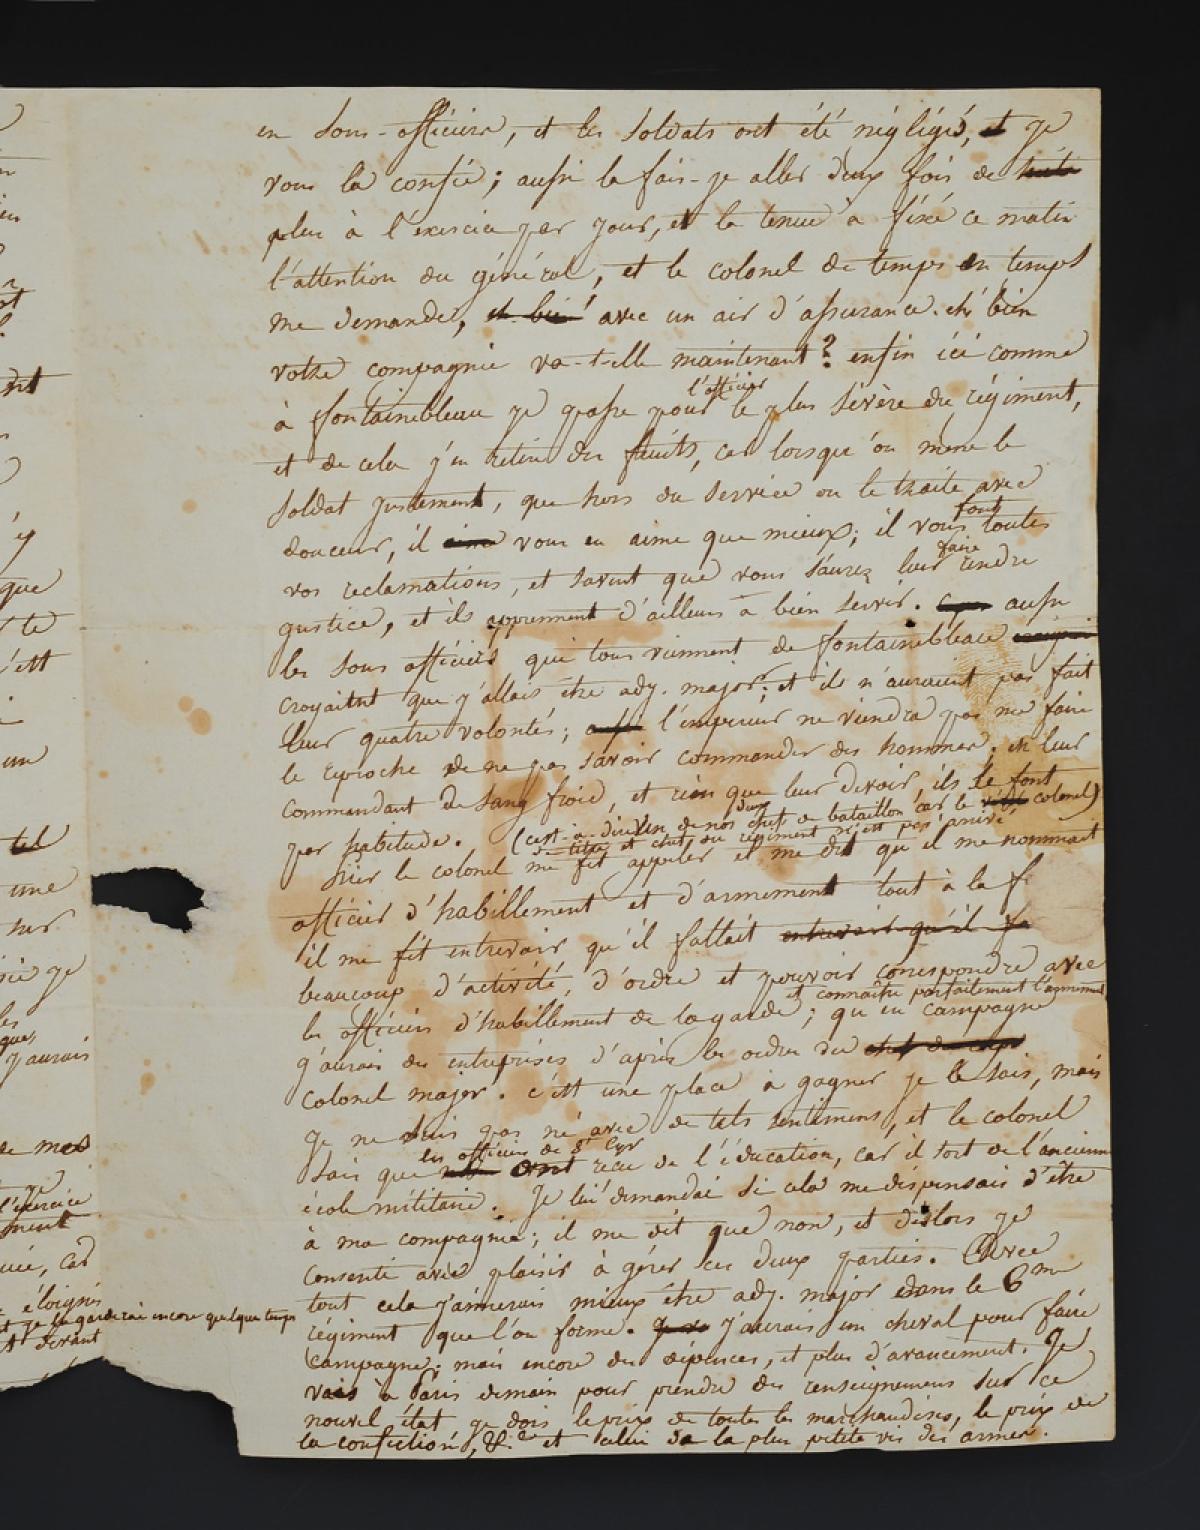 en sous-officiers, et les soldats ont été négligés, et je
vous la confie; aussi la fais-je aller deux fois de
plus à l'exercice par jour, et la tenue a fixé ce matin
l'attention du général, et le colonel de temps en temps
me demande, eh bien! avec un air d'assurance. eh bien
votre compagnie va-t-elle maintenant? enfin ici comme
l'officier
à fontainebleau je passe pour le plus sévère du régiment,
et de cela j'en retire des fruits, car lorsqu'on mène le
soldat justement, que hors du service on le traite avec
douceur, il aime vous en aime que mieux; il vous toutes
font
vos reclamations, et savent que vous saurez leur rendre
faire
justice, et ils apprennent d'ailleurs à bien servir. aussi
les sous officiers qui tous viennent de fontainebleau
croyaient que j'allais être adj. major; et ils n'auraient pas fait
leur quatre volontés; aussi l'empereur ne viendra pas me faire
le reproche de ne pas savoir commander des hommes. en leur
commandant de sang froid, et rien que leur devoir, ils le font
par habitude. (c'est-à-dire un de nos chef de bataillon car le colonel)
deux
de titre et chef du régiment n'est pas arrivé
hier le colonel me fit appeler et me dit qu'il me nommait
officier d'habillement et d'armement tout à la f
il me fit entrevoir qu'il fallait entrevoir qu'il fa
beaucoup d'activité, d'ordre et pouvoir correspondre avec
et connaître parfaitement l'armement
les officiers d'habillement de la garde; qu'en campagne
j'aurais des entreprises d'après les ordres du chef de corps
colonel major. c'est une place à gagner je le sais, mais
je ne suis pas né avec de tels sentimens, et le colonel
les officiers de St Cyr
sais que ont recu de l'éducation, car il sort de l'ancienne
école militaire. Je lui demandai si cela me dispensais d'être
à ma compagnie; il me dit que non, et dèslors je
consenti avec plaisir à gérer ces deux parties. Avec
tout cela j'aimerais mieux être adj. major dans le 6me
régiment que l'on forme. j'aurais un cheval pour faire
campagne; mais encore des dépenses, et plus d'avancement. Je
vais à Paris demain pour prendre des renseignemens sur ce
nouvel état je dois le prix de toutes les marchandises, le prix de
la confiction, &c et celui de la plus petite vis des armes.
ent
y
que
te
c'est
un
tel
une
sur
je
j'aurais
de mes
l'exercice
car
éloignés
et je la garderai encore quelque temps
devant